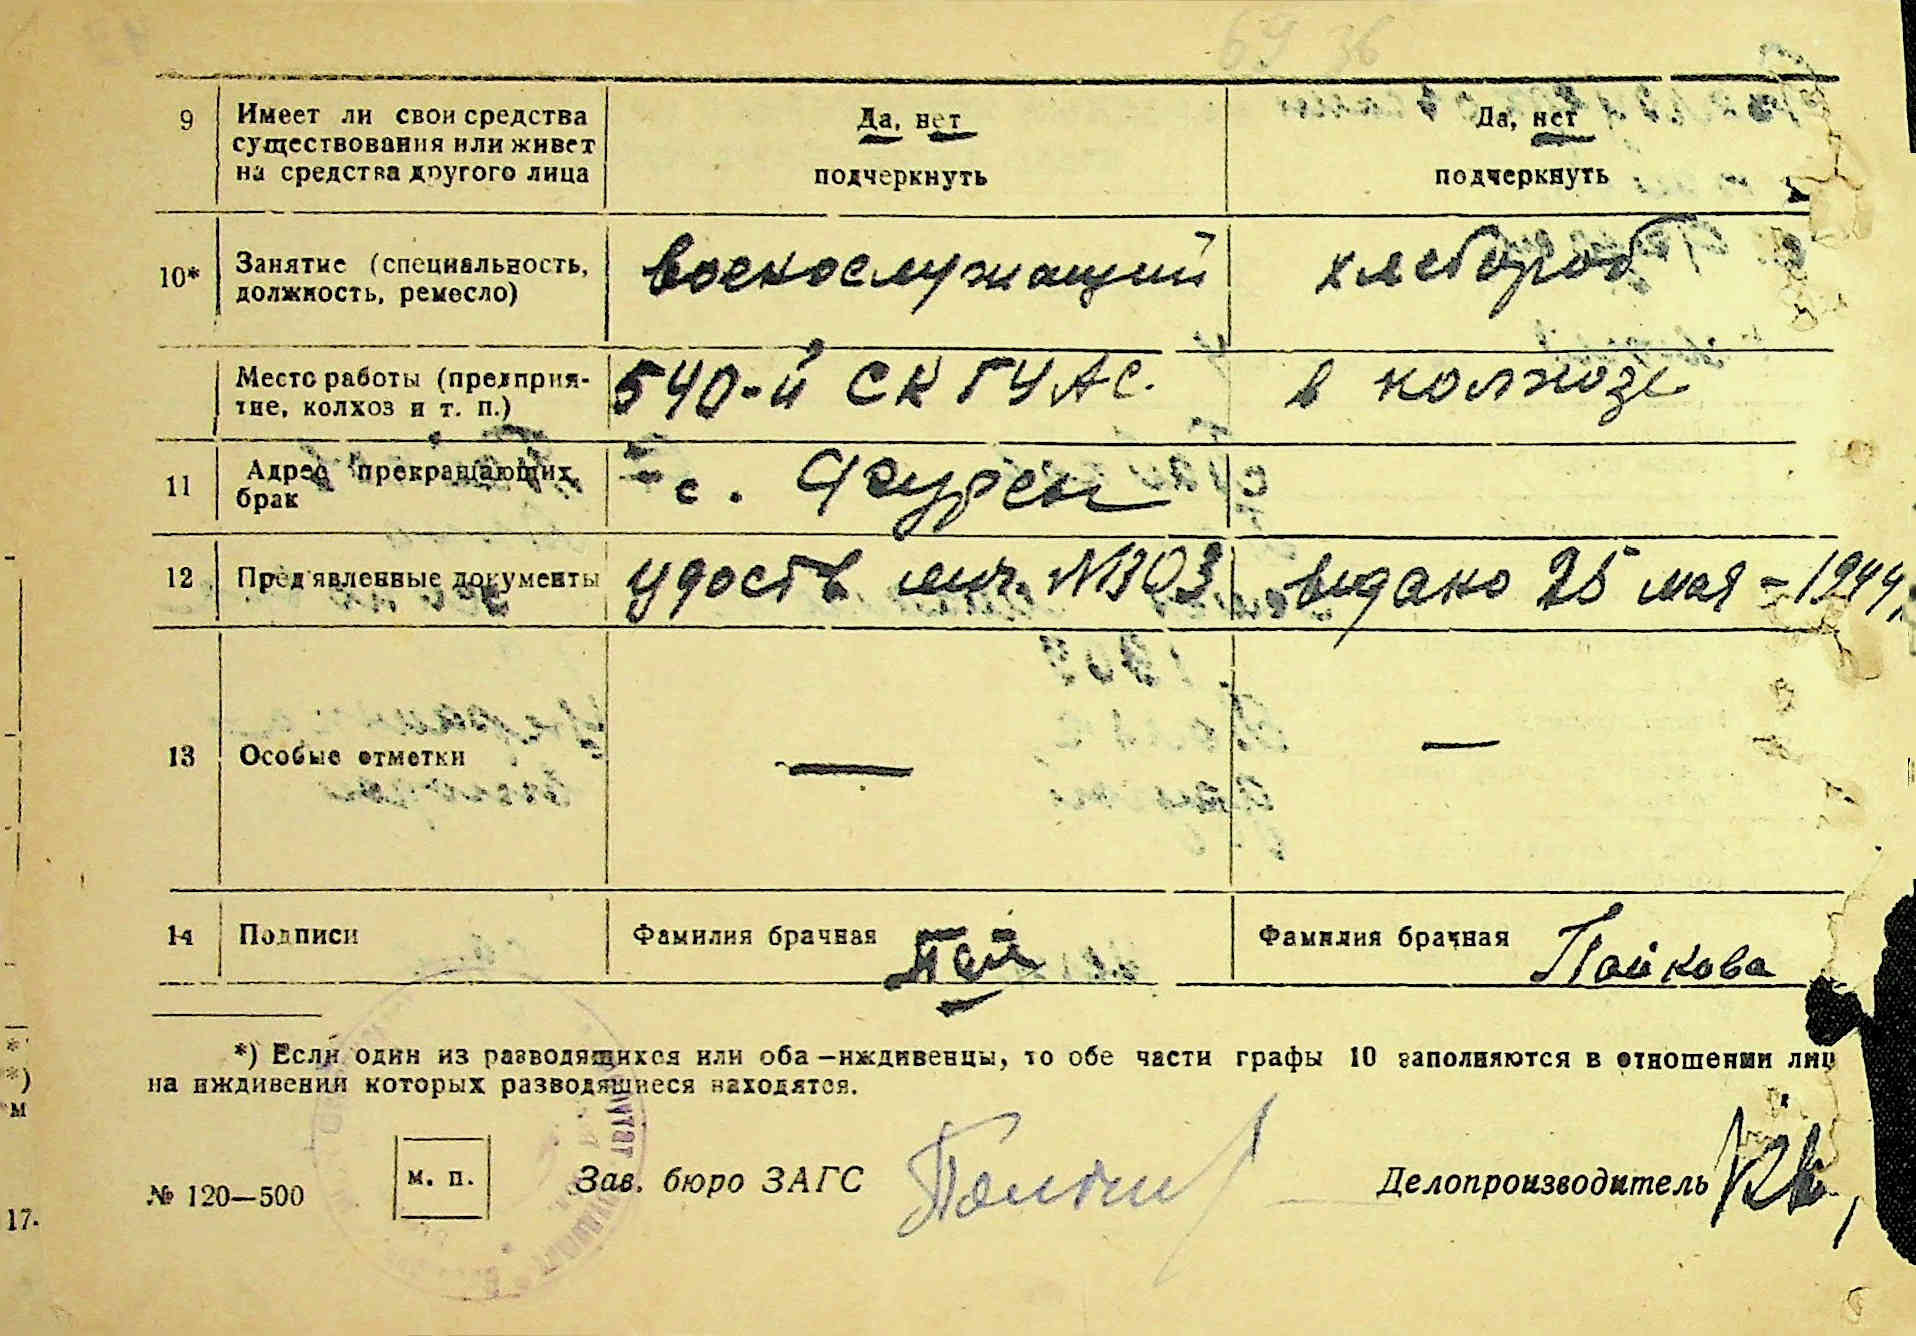 64 36
9 Имеет ли свои средства Да, нет Да, нет
существования или живет
на средства другого лица подчеркнуть подчеркнуть
10* Занятие (специальность, военослужащий хлебороб
должность, ремесло)
Место работы (предприя- 540-й СК ГУАС. в колхозе
тие, колхоз и т. п.)
11 Адрес прекращающих с.
брак
12 Пред'явленные документы удоств лич. №303 видано 25 мая - 1944
13 Особые отметки — —
14 Подписи Фамилия брачная Пай Фамилия брачная Пайкова
*) Если один из разводящихся или оба—иждивенцы, то обе части графы 10 заполняются в отношении лиц
на иждивении которых разводящиеся находятся.
№ 120—500 м. п. Зав. бюро ЗАГС Делопроизводитель
17.